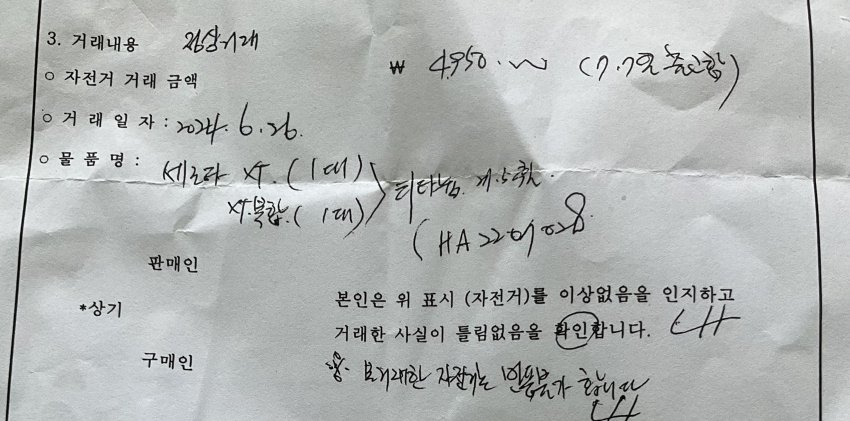 3. 거래내용 정상거래
○ 자전거 거래 금액 ₩ 4,950. (7.7일 출고함)
○ 거 래 일 자 : 2024. 6. 26.
○ 물 품 명 : 세로타 XT. (1대)
XT.복합. (1대) 티타늄.
(HA22
판매인
*상기 본인은 위 표시 (자전거)를 이상없음을 인지하고
거래한 사실이 틀림없음을 확인합니다.
구매인
※. 본거래한 자전거는 반품불가 합니다